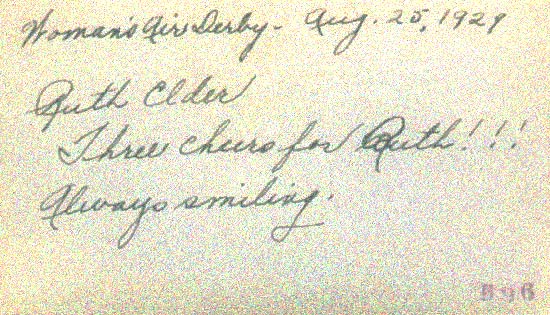 Woman's Air Derby - Aug. 25, 1929
Ruth Elder
Three cheers for Ruth!!!
Always smiling.
596